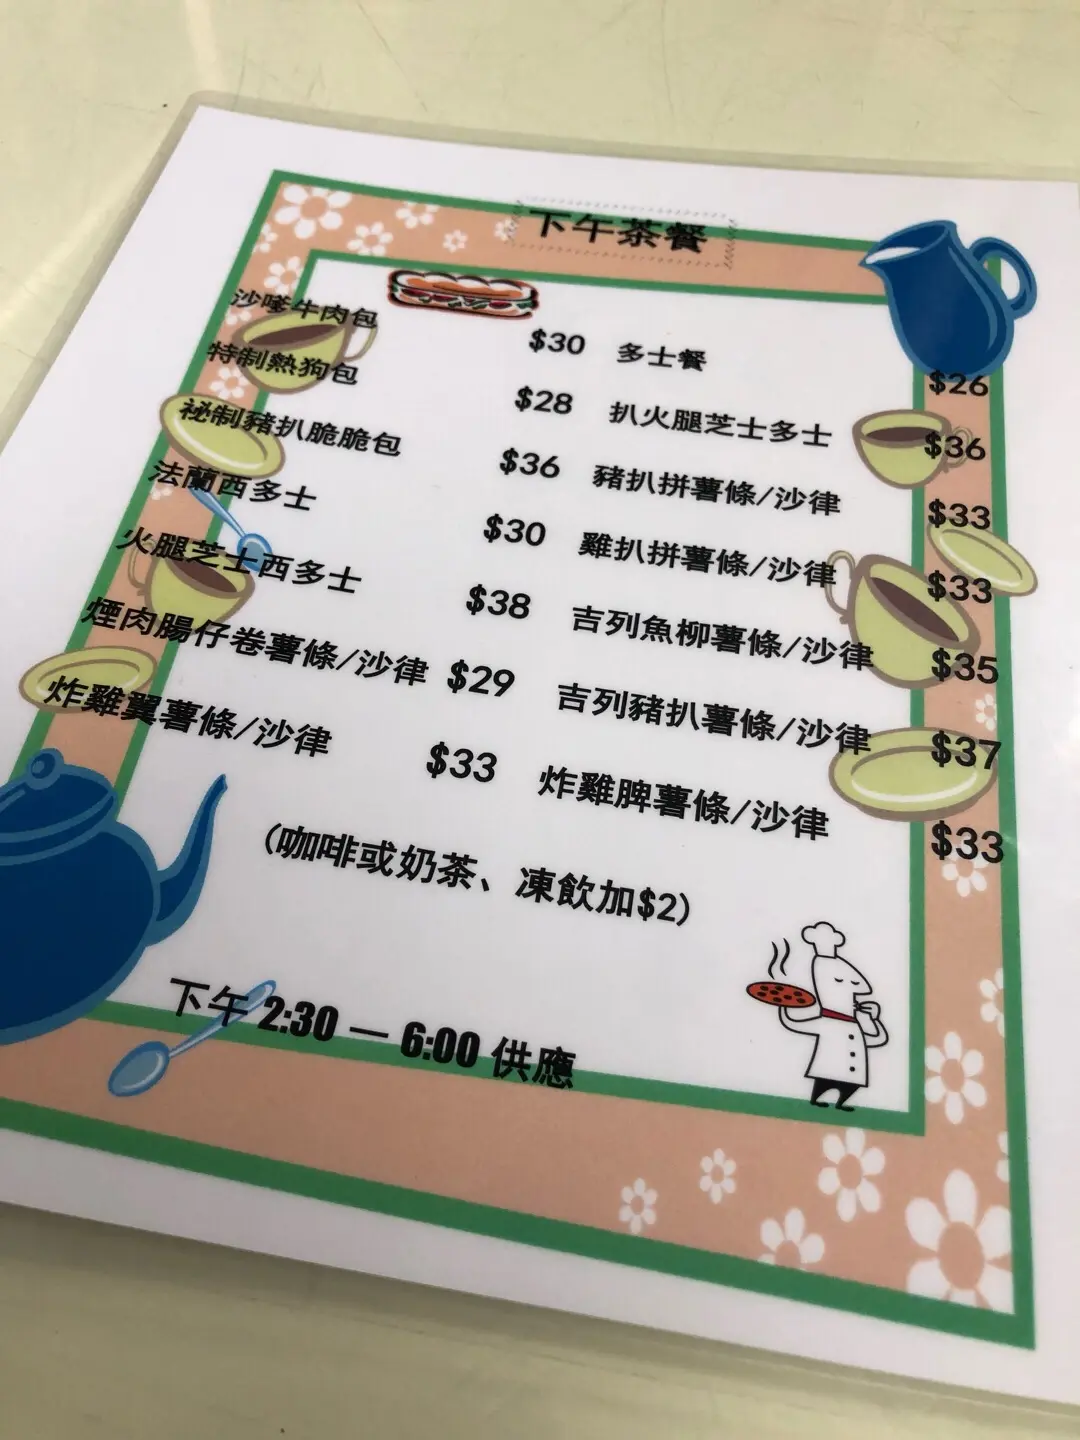 下午茶餐
沙嗲牛肉包 $30
特制熱狗包 $28
祕制豬扒脆脆包 $36
法蘭西多士 $30
火腿芝士西多士 $38
煙肉腸仔卷薯條/沙律 $29
炸雞翼薯條/沙律 $33
多士餐 $26
扒火腿芝士多士 $36
豬扒拼薯條/沙律 $33
雞扒拼薯條/沙律 $33
吉列魚柳薯條/沙律 $35
吉列豬扒薯條/沙律 $37
炸雞脾薯條/沙律 $33
(咖啡或奶茶、凍飲加$2)
下午 2:30 — 6:00 供應